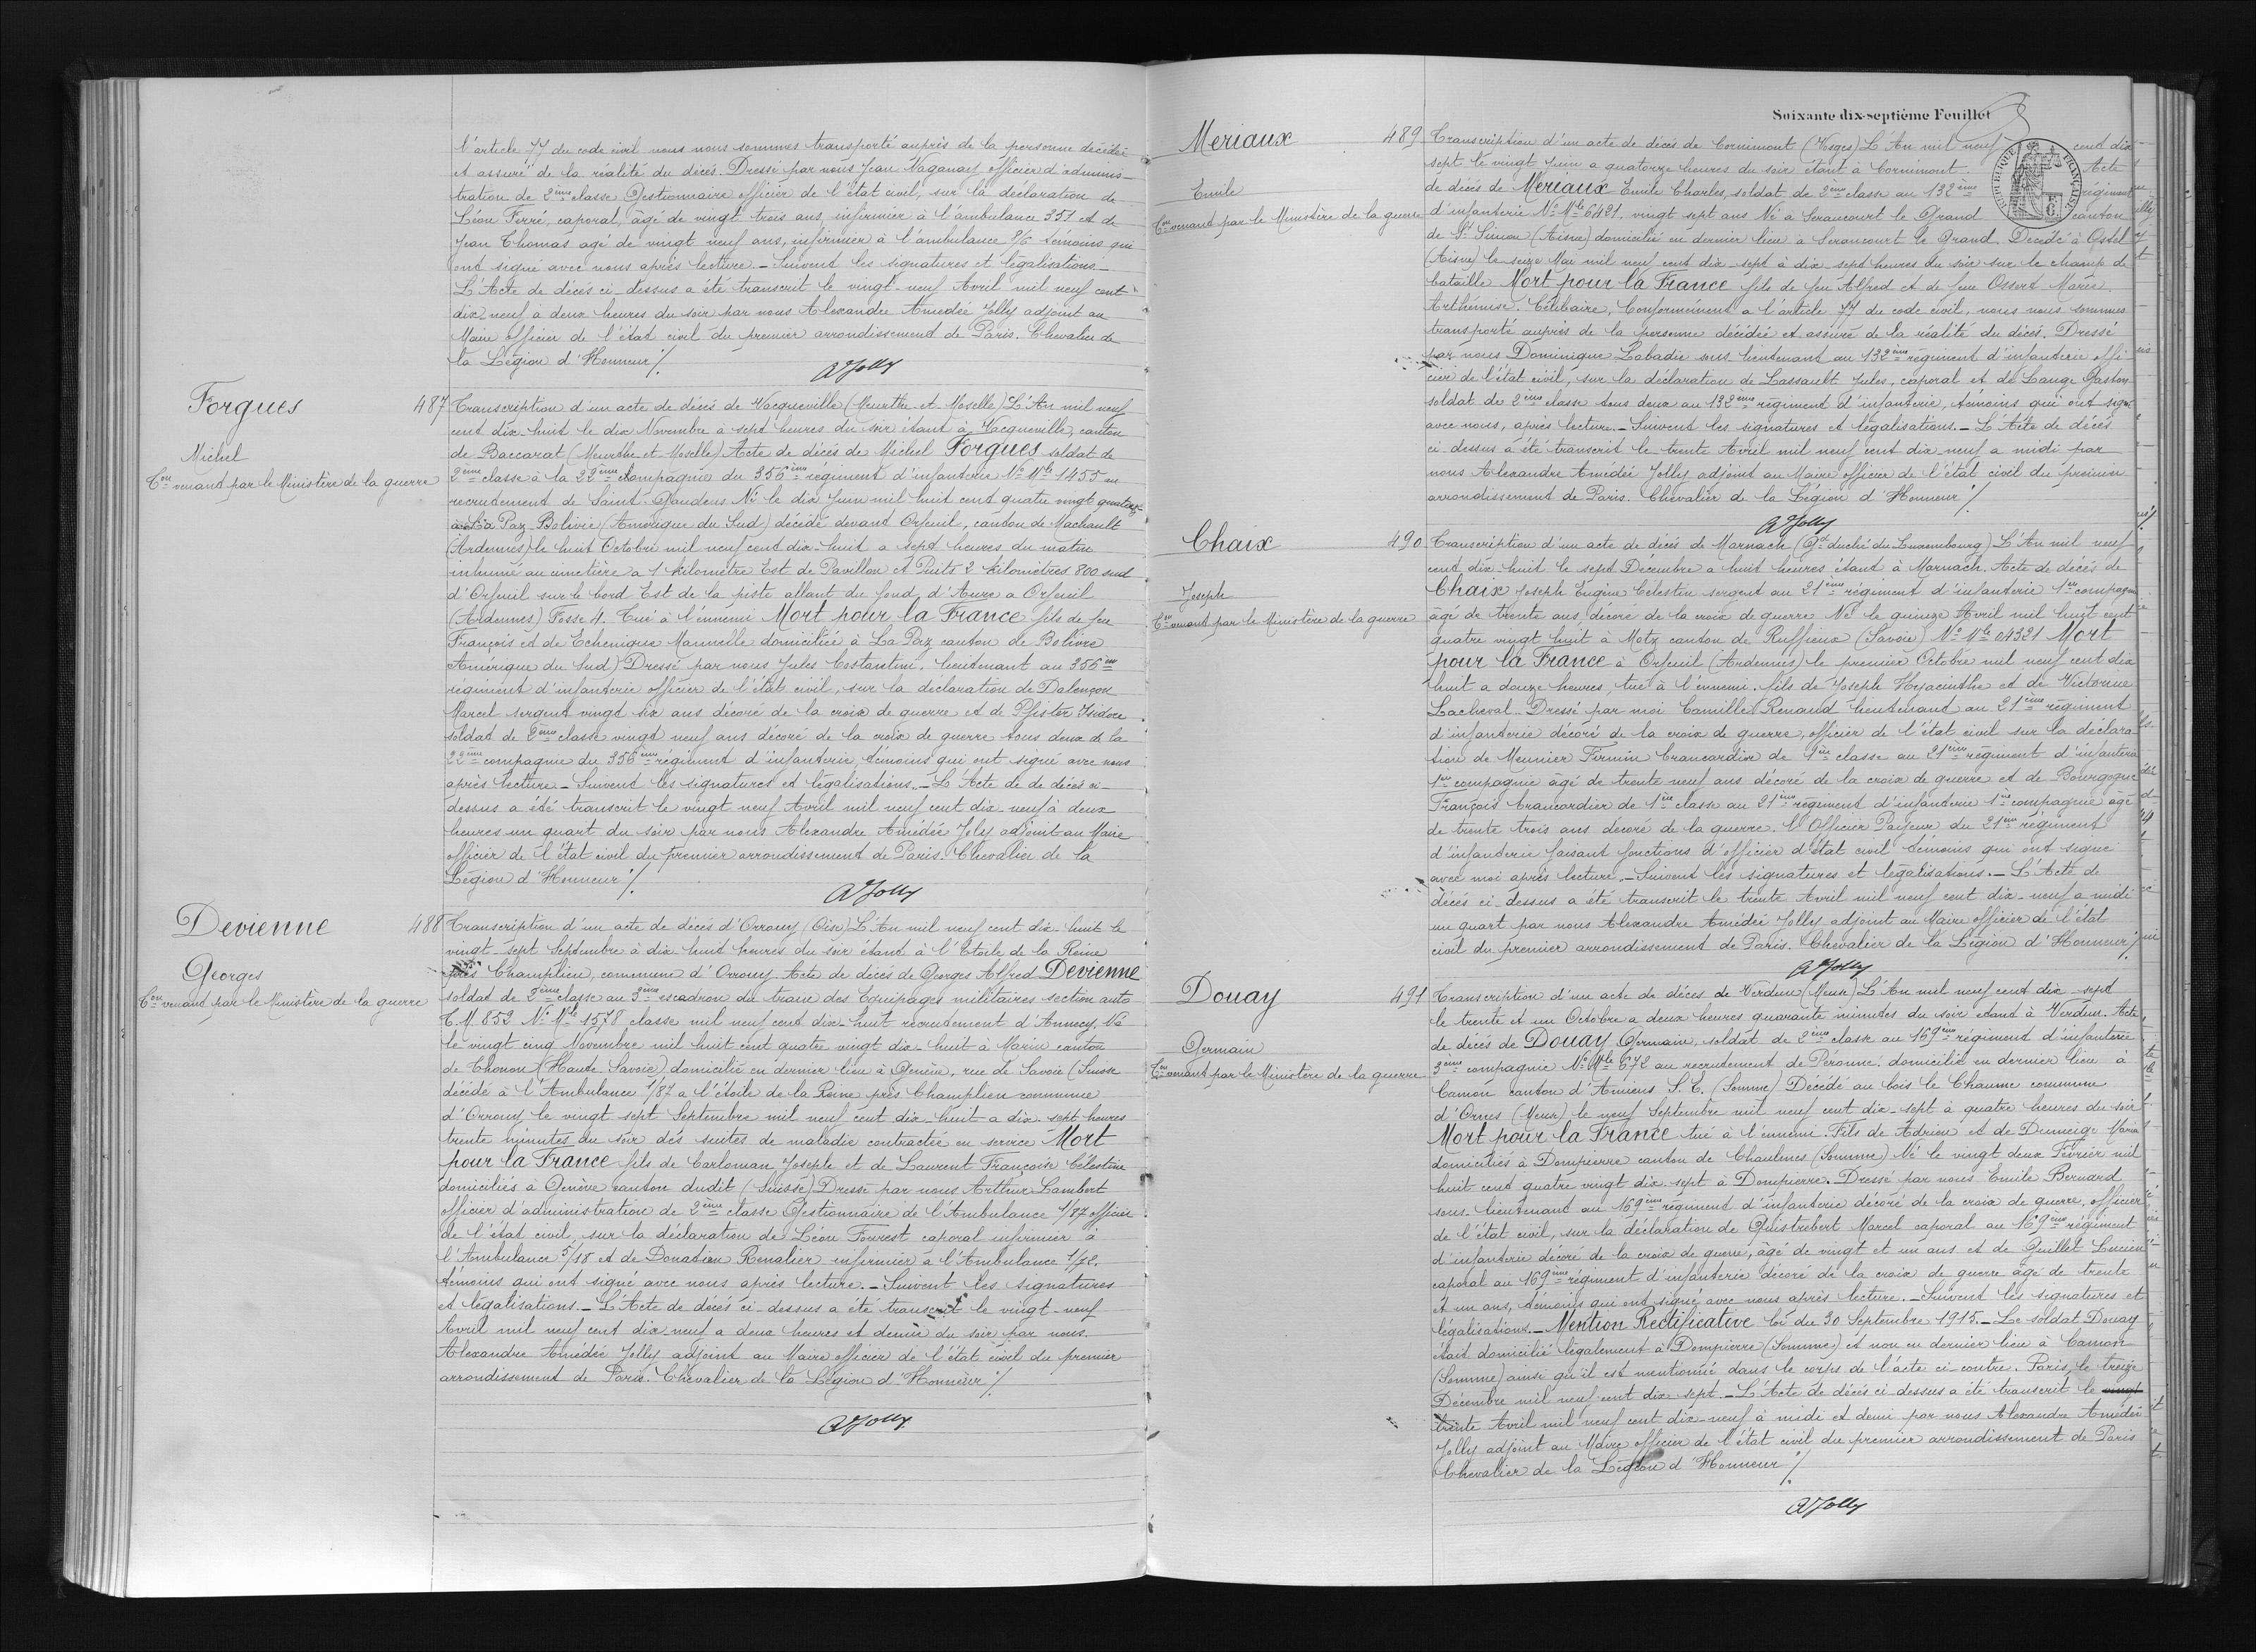 l'article 77 du code civil nous nous sommes transporté auprès de la personne décédée
et assuré de la réalité du décès. Dressé par nous Jean Naganay officier d'adminis-
tration de 2ème classe Gestionnaire officier de l'état civil, sur la déclaration de
Léon Ferré, caporal, âgé de vingt trois ans, infirmier à l'ambulance 351 et de
Jean Thomas agé de vingt neuf ans, infirmier à l'ambulance 9/6 témoins qui
ont signé avec nous après lecture. _ Suivent les signatures et légalisations._
L'Acte de décès ci-dessus a été transcrit le vingt-neuf Avril mil neuf cent
dix neuf a deux heures du soir par nous Alexandre Amédée Jolly adjoint au
Maire officier de l'état civil du premier arrondissement de Paris. Chevalier de
la Légion d'Honneur /.
AJolly
Forgues
Michel
Con venant par le Ministère de la guerre
487 Transcription d'un acte de décès de Vacqueville (Meurthe et Moselle) L'An mil neuf
cent dix-huit le dix Novembre a sept heures du soir étant à Vacqueville, canton
de Baccarat (Meurthe et Moselle) Acte de décès de Michel Forgues soldat de
2ème classe à la 22ème Compagnie du 356ème régiment d'infanterie No Mle 1455 au
recrutement de Saint Gaudens Né le dix Juin mil huit cent quatre vingt quatorze
à La Paz Bolivie (Amérique du Sud) décédé devant Orfeuil, canton de Machault
(Ardennes) le huit Octobre mil neuf cent dix-huit a sept heures du matin
inhumé au cimetière a 1 kilomètre Est de Pavillon et Puits 2 kilomètres 800 sud
d'Orfeuil sur le bord Est de la piste allant du fond d'Aure a Orfeuil
(Ardennes) Fosse 4. Tué à l'ennemi Mort pour la France fils de feu
François et de Echenique Manuelle domiciliée à La Paz canton de Bolivie
Amérique du Sud) Dressé par nous Jules Costantini, lieutenant au 356ème
régiment d'infanterie officier de l'état civil, sur la déclaration de Dalençon
Marcel sergent vingt six ans décoré de la croix de guerre et de Pfister Isidore
soldat de 2ème classe vingt neuf ans décoré de la croix de guerre tous deux à la
22ème compagnie du 356ème régiment d'infanterie, témoins qui ont signé avec nous
après lecture _ Suivent les signatures et légalisations._ L'Acte de de décès ci-
dessus a été transcrit le vingt neuf Avril mil neuf cent dix-neuf à deux
heures un quart du soir par nous Alexandre Amédée Joly adjoint au Maire
officier de l'état civil du premier arrondissement de Paris. Chevalier de la
Légion d'Honneur /.
AJolly
Devienne
Georges
Con venant par le Ministère de la guerre
488 Transcription d'un acte de décès d'Orrouy (Oise) L'An mil neuf cent dix-huit le
vingt-sept Septembre à dix huit heures du soir étant à l'Etoile de la Reine
près Champlieu, commune d'Orrouy. Acte de décès de Georges Alfred Devienne
soldat de 2ème classe au 3ème escadron du train des Equipages militaires section auto
T.M. 852 No Mle 1578 classe mil neuf cent dix-huit recrutement d'Annecy. Né
le vingt cinq Novembre mil huit cent quatre vingt dix-huit à Marin canton
de Thonon (Haute Savoie) domicilié en dernier lieu à Genève, rue de Savoie (Suisse
décédé à l'Ambulance 1/87 a l'étoile de la Reine près Champlieu commune
d'Orrouy le vingt sept Septembre mil neuf cent dix-huit a dix-sept heures
trente minutes du soir des suites de maladie contractée en service Mort
pour la France fils de Carloman Joseph et de Laurent Françoise Célestine
domiciliés à Genève canton dudit (Suisse) Dressé par nous Arthur Lambert
officier d'administration de 2ème classe Gestionnaire de l'Ambulance 1/87 officier
de l'état civil, sur la déclaration de Léon Fourest caporal infirmier à
l'Ambulance 5/18 et de Donatien Renalier infirmier à l'Ambulance
témoins qui ont signé avec nous après lecture._ Suivent les signatures
et légalisations._ L'Acte de décès ci-dessus a été transcrit le vingt-neuf
Avril mil neuf cent dix-neuf a deux heures et demie du soir par nous
Alexandre Amédée Jolly adjoint au Maire officier de l'état civil du premier
arrondissement de Paris. Chevalier de la Légion d'Honneur /.
AJolly
Soixante-dix-septième Feuillet
REPUBLIQUE FRANÇAISE
Meriaux
Emile
Con venant par le Ministère de la guerre
489 Transcription d'un acte de décès de Cornimont (Vosges) L'An mil neuf cent dix
sept le vingt Juin a quatorze heures du soir étant à Cornimont. Acte
de décès de Meriaux Emile Charles, soldat de 2ème classe au 132ème régiment
d'infanterie No Mle 6421, vingt sept ans Né à Seraucourt le Grand canton
de St Simon (Aisne) domicilié en dernier lieu à Seraucourt le Grand. Décédé à Ostel
(Aisne) le seize Mai mil neuf cent dix-sept à dix-sept heures du soir sur le champ de
bataille Mort pour la France fils de feu Alfred et de feu Ossert Marie
Arthémise. Célibaire, Conformément a l'article 77 du code civil, nous nous sommes
transporté auprès de la personne décédée et assuré de la réalité du décès. Dressé
par nous Dominique Labadie sous lieutenant au 132ème régiment d'infanterie offi-
cier de l'état civil, sur la déclaration de Lassault Jules, caporal et de Lange Gaston
soldat de 2ème classe tous deux au 132ème régiment d'infanterie, témoins qui ont signé
avec nous, après lecture._ Suivent les signatures et légalisations._ L'Acte de décès
ci-dessus a été transcrit le trente Avril mil neuf cent dix-neuf a midi par
nous Alexandre Amédée Jolly adjoint au Maire officier de l'état civil du premier
arrondissement de Paris. Chevalier de la Légion d'Honneur /.
AJolly
Chaix
Joseph
Con venant par le Ministère de la guerre
490 Transcription d'un acte de décès de Marnach (Gd duché du Luxembourg) L'An mil neuf
cent dix-huit le sept Decembre a huit heures étant à Marnach. Acte de décès de
Chaix Joseph Eugène Célestin sergent au 21ème régiment d'infanterie 1ère compagnie
âgé de trente ans décoré de la croix de guerre Né le quinze Avril mil huit cent
quatre vingt huit à Motz canton de Ruffieux (Savoie) No Mle 04321 Mort
pour la France à Orfeuil (Ardennes) le premier Octobre mil neuf cent dix
huit a douze heures, tué à l'ennemi. fils de Joseph Hyacinthe et de Victorine
Lacheval. Dressé par moi Camille Renaud lieutenant au 21ème régiment
d'infanterie décoré de la croix de guerre, officier de l'état civil sur la déclara
tion de Meunier Firmin brancardier de 1ère classe au 21ème régiment d'infanterie
1ère compagnie âgé de trente neuf ans décoré de la croix de guerre et de Bourgogne
François brancardier de 1ère classe au 21ème régiment d'infanterie 1ère compagnie âgé
de trente trois ans décoré de la guerre. L'Officier Payeur du 21ème régiment
d'infanterie faisant fonctions d'officier d'état civil témoins qui ont signé
avec moi après lecture._ Suivent les signatures et légalisations._ L'Acte de
décès ci-dessus a été transcrit le trente Avril mil neuf cent dix-neuf a midi
un quart par nous Alexandre Amédée Jolly adjoint au Maire officier de l'état
civil du premier arrondissement de Paris. Chevalier de la Légion d'Honneur /.
AJolly
Douay
Germain
Con venant par le Ministère de la guerre
491 Transcription d'un acte de décès de Verdun (Meuse) L'An mil neuf cent dix-sept
le trente et un Octobre a deux heures quarante minutes du soir étant à Verdun. Acte
de décès de Douay Germain, soldat de 2ème classe au 169ème régiment d'infanterie
3ème compagnie No Mle 672 au recrutement de Péronne domicilié en dernier lieu à
Camon canton d'Amiens S.E. (Somme) Décédé au bois le Chaume commune
d'Ornes (Meuse) le neuf Septembre mil neuf cent dix-sept à quatre heures du soir
Mort pour la France tué à l'ennemi. Fils de Adrien et de Dumeige Maria
domiciliés à Dompierre canton de Chaulnes (Somme) Né le vingt deux Février mil
huit cent quatre vingt dix sept à Dompierre. Dressé par nous Emile Bernard
sous-lieutenant au 169ème régiment d'infanterie décoré de la croix de guerre, officier
de l'état civil, sur la déclaration de Quistrebert Marcel caporal au 169ème régiment
d'infanterie décoré de la croix de guerre, âgé de vingt et un ans et de Quillet Lucien
caporal au 169ème régiment d'infanterie décoré de la croix de guerre âgé de trente
et un ans, témoins qui ont signé avec nous après lecture._ Suivent les signatures et
légalisations._ Mention Rectificative loi du 30 Septembre 1915._ Le soldat Douay
était domicilié légalement à Dompierre (Somme) et non en dernier lieu à Camon
(Somme) ainsi qu'il est mentionné dans le corps de l'acte ci-contre. Paris, le treize
Décembre mil neuf cent dix sept._ L'Acte de décès ci-dessus a été transcrit le vingt
trente Avril mil neuf cent dix-neuf à midi et demi par nous Alexandre Amédée
Jolly adjoint au Maire officier de l'état civil du premier arrondissement de Paris
Chevalier de la Légion d'Honneur /.
AJolly